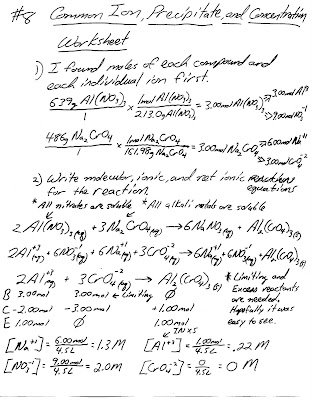 #8 Common Ion, Precipitate, and Concentration
Worksheet
1) I found moles of each compound and
each individual ion first.
639g Al(NO3)3 / 1 × 1mol Al(NO3)3 / 213.0g Al(NO3)3 = 3.00mol Al(NO3)3 → 3.00mol Al+3
→ 9.00mol NO3-1
486g Na2CrO4 / 1 × 1mol Na2CrO4 / 161.98g Na2CrO4 = 3.00mol Na2CrO4 → 6.00mol Na+1
→ 3.00mol CrO4-2
2) Write molecular, ionic, and net ionic equations
for the reaction.
*All nitrates are soluble *All alkali metals are soluble
2Al(NO3)3(aq) + 3Na2CrO4(aq) → 6NaNO3(aq) + Al2(CrO4)3(s)
2Al+3(aq) + 6NO3-1(aq) + 6Na+1(aq) + 3CrO4-2(aq) → 6Na+1(aq) + 6NO3-1(aq) + Al2(CrO4)3(s)
2Al+3(aq) + 3CrO4-2(aq) → Al2(CrO4)3(s)
B 3.00mol 3.00mol ← Limiting Ø
C -2.00mol -3.00mol +1.00mol
E 1.00mol Ø 1.00mol
* Limiting and
Excess reactants
are needed,
Hopefully it was
easy to see.
[Na+1] = 6.00mol / 4.5L = 1.3M [Al+3] = 1.00mol / 4.5L = .22M
[NO3-1] = 9.00mol / 4.5L = 2.0M [CrO4-2] = 0 / 4.5L = 0M